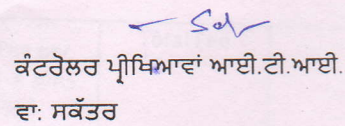 — Sd/-
ਕੰਟਰੋਲਰ ਪ੍ਰੀਖਿਆਵਾਂ ਆਈ.ਟੀ.ਆਈ.
ਵਾ: ਸਕੱਤਰ